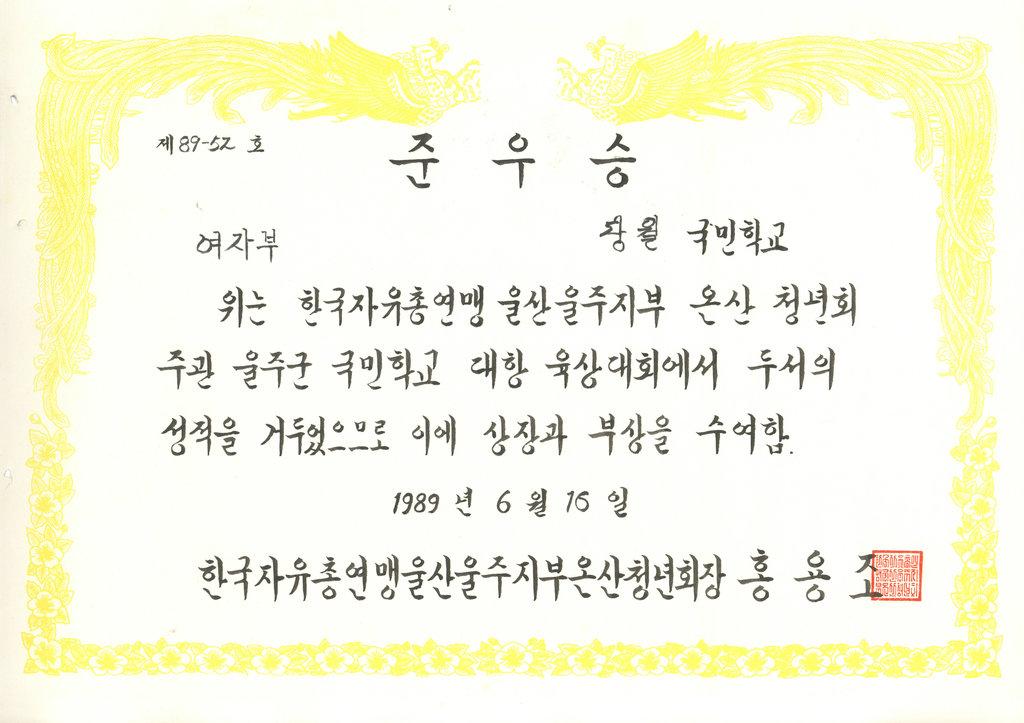 제 89-52 호
준우승
여자부
월 국민학교
위는 한국자유총연맹 울산울주지부 온산 청년회
주관 울주군 국민학교 대항 육상대회에서 두서의
성적을 거두었으므로 이에 상장과 부상을 수여함.
1989 년 6 월 16 일
한국자유총연맹울산울주지부온산청년회장 홍 용 조